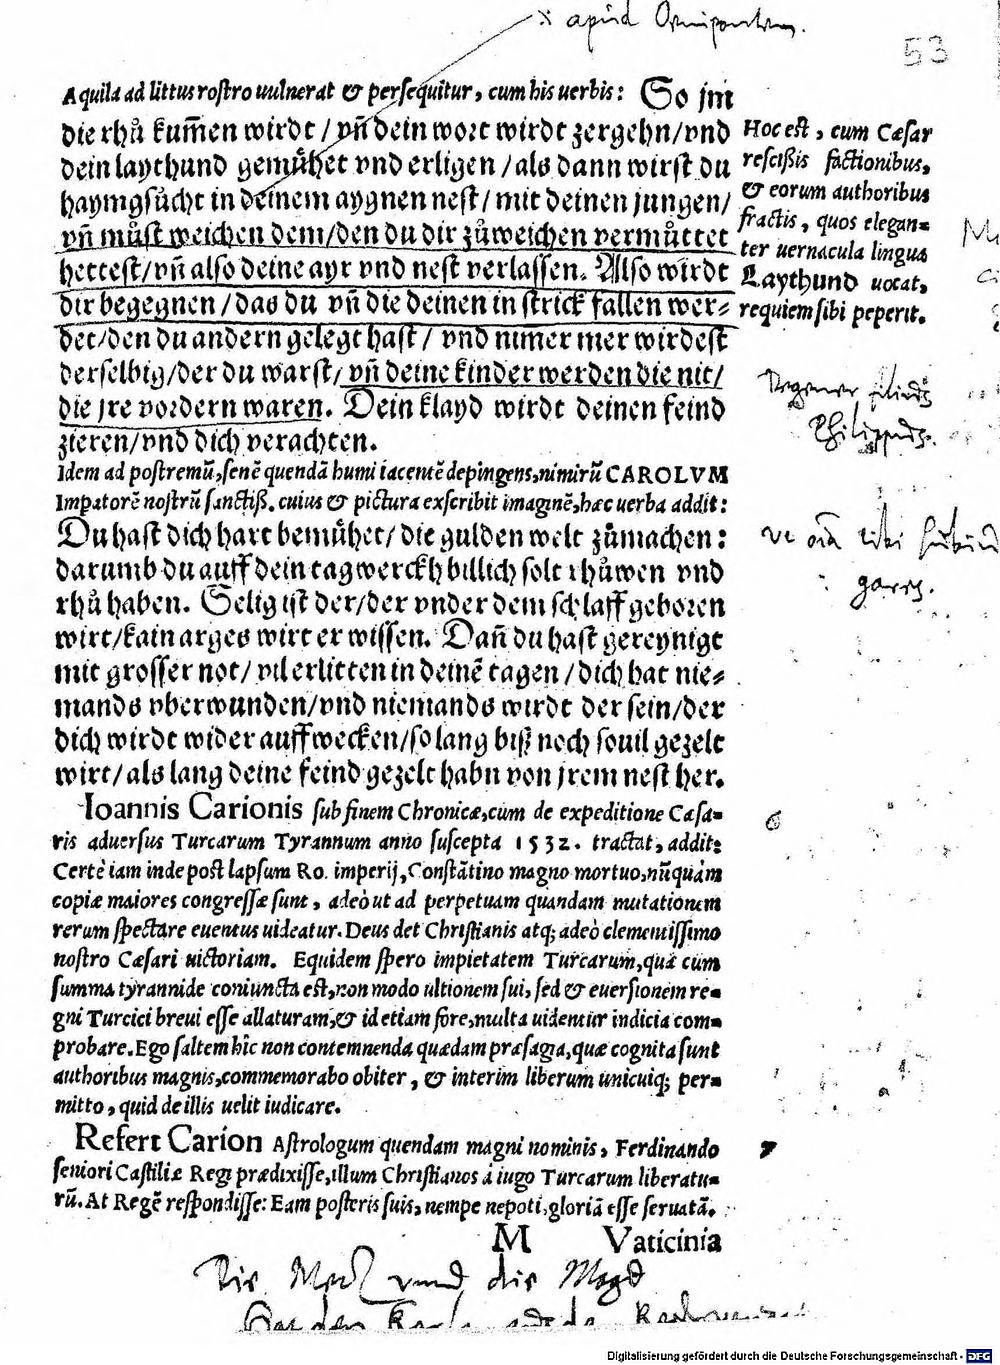 x apud
53
Aquila ad littus rostro uulnerat & persequitur, cum his uerbis: So jm
die rhů kum̃en wirdt / vñ dein wort wirdt zergehn/vnd
dein laythund gemůhet vnd erligen / als dann wirst du
haymgsůcht in deinem aygnen nest / mit deinen jungen/
vñ můst weichen dem/den du dir zůweichen vermůttet
hettest/vñ also deine ayr vnd nest verlassen. Also wirdt
dir begegnen / das du vñ die deinen in strick fallen wer⸗
det/den du andern gelegt hast / vnd nimer mer wirdest
derselbig/der du warst/ vñ deine kinder werden die nit/
die jre vordern waren. Dein klayd wirdt deinen feind
zieren/vnd dich verachten.
Hoc est, cum Cæsar
rescißis factionibus,
& eorum authoribus
fractis, quos elegan=
ter uernacula lingua
Laythund uocat,
requiem sibi peperit.
Philippus.
Idem ad postremũ, senẽ quendã humi iacentẽ depingens, nimirũ CAROLVM
Impatorẽ nostrũ sanctiß. cuius & pictura exscribit imaginẽ, hæc uerba addit:
Du hast dich hart bemůhet/ die gulden welt zůmachen:
darumb du auff dein tagwerckh billich solt rhůwen vnd
rhů haben. Selig ist der/der vnder dem schlaff geboren
wirt/kain arges wirt er wissen. Dañ du hast gereynigt
mit grosser not/ vil erlitten in deinẽ tagen / dich hat nie⸗
mands vberwunden/vnd niemands wirdt der sein/der
dich wirdt wider auffwecken/so lang biß noch souil gezelt
wirt/ als lang deine feind gezelt habn von jrem nest her.
Ioannis Carionis sub finem Chronicæ, cum de expeditione Cæsa=
ris aduersus Turcarum Tyrannum anno suscepta 1532. tractat, addit:
Certè iam inde post lapsum Ro. imperij, Constãtino magno mortuo, nũquàm
copiæ maiores congressæ sunt, adeò ut ad perpetuam quandam mutationem
rerum spectare euentus uideatur. Deus det Christianis atq; adeò clementissimo
nostro Cæsari uictoriam. Equidem spero impietatem Turcarum, quæ cum
summa tyrannide coniuncta est, non modo ultionem sui, sed & euersionem re=
gni Turcici breui esse allaturam, & id etiam fore, multa uidentur indicia com=
probare. Ego saltem hîc non contemnenda quædam præsagia, quæ cognita sunt
authoribus magnis, commemorabo obiter, & interim liberum unicuiq; per=
mitto, quid de illis uelit iudicare.
6
Refert Carion Astrologum quendam magni nominis, Ferdinando
seniori Castiliæ Regi prædixisse, illum Christianos à iugo Turcarum liberatu=
rũ. At Regẽ respondisse: Eam posteris suis, nempe nepoti, gloriã esse seruatã.
7
M Vaticinia
vnnd die Magd
Digitalisierung gefördert durch die Deutsche Forschungsgemeinschaft - DFG